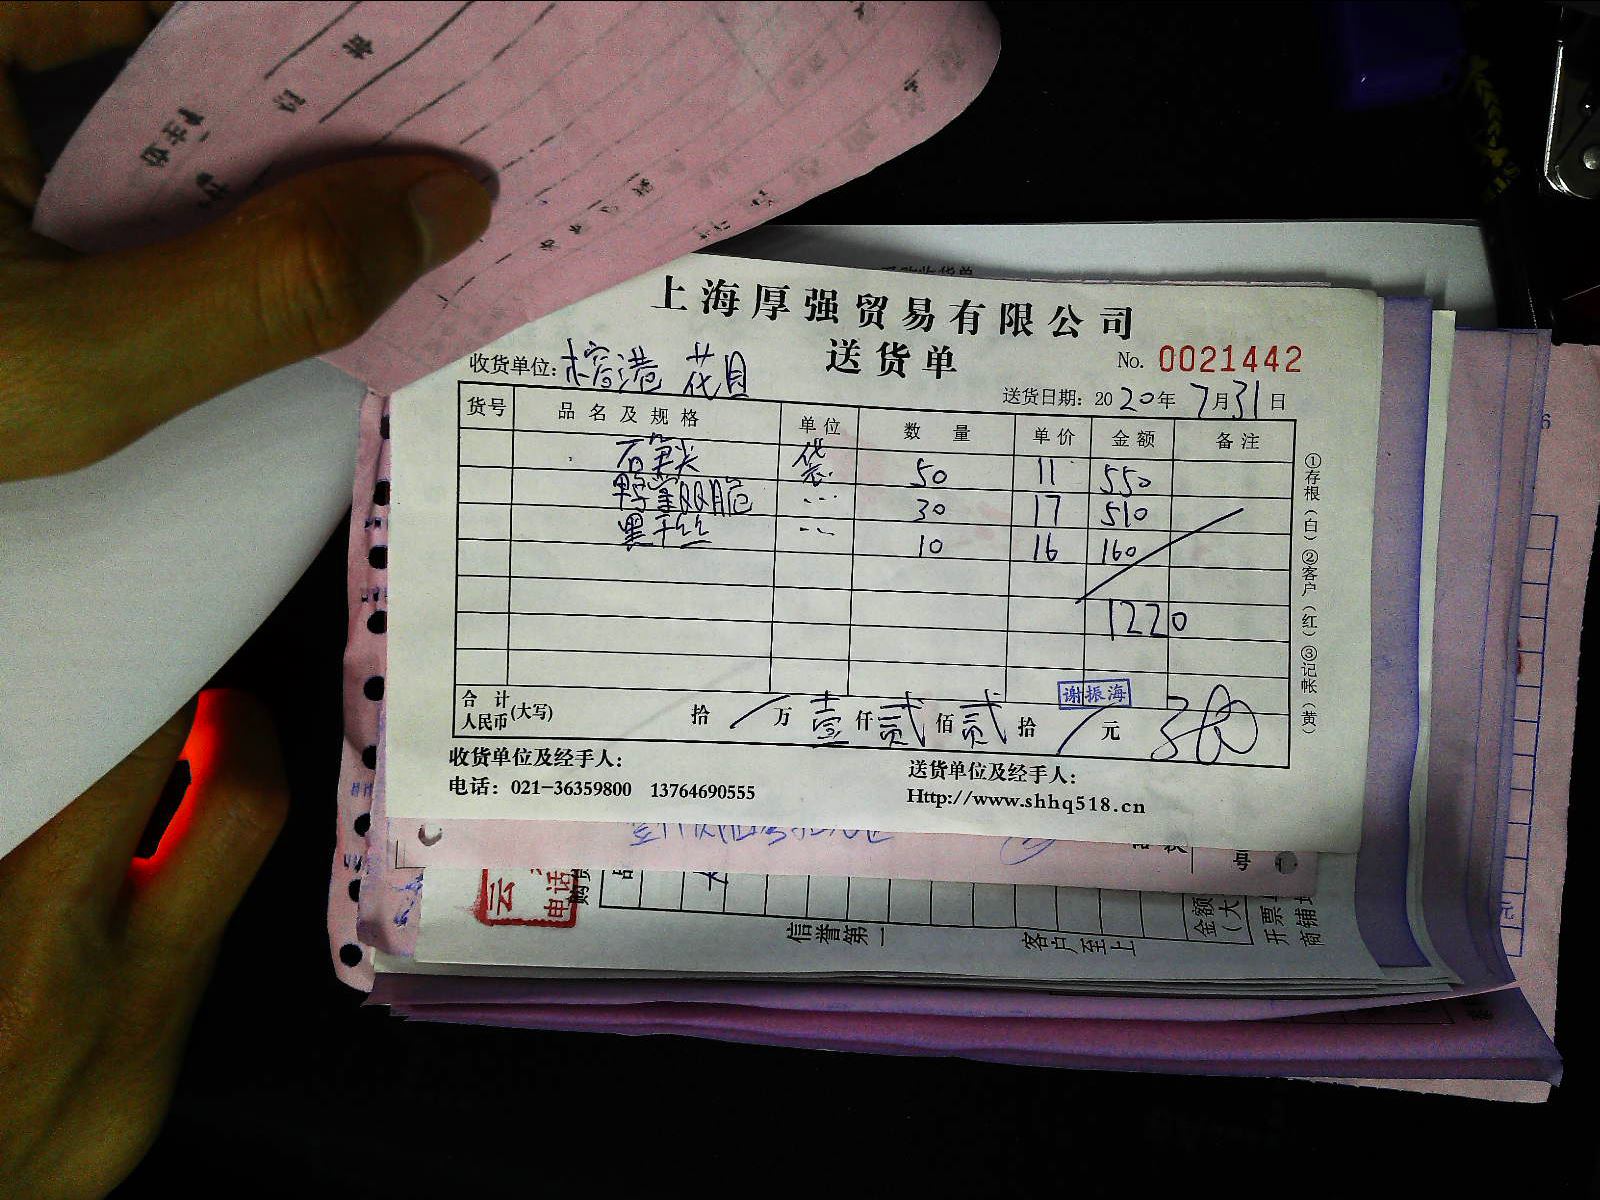 上海厚强贸易有限公司
送货单
No. 0021442
收货单位：榕港 花目
送货日期：2020年7月31日
货号 品名及规格 单位 数量 单价 金额 备注
石笋尖 袋 50 11 550
鸭掌双脆 … 30 17 510
黑千丝 … 10 16 160
1220
谢振海
合计人民币(大写) 拾 / 万 壹 仟 贰 佰 贰 拾 / 元
收货单位及经手人：
送货单位及经手人：
电话：021-36359800 13764690555
Http://www.shhq518.cn
①存根（白）②客户（红）③记帐（黄）
云
电话
信誉第一
客户至上
金额
(大
开票
商铺